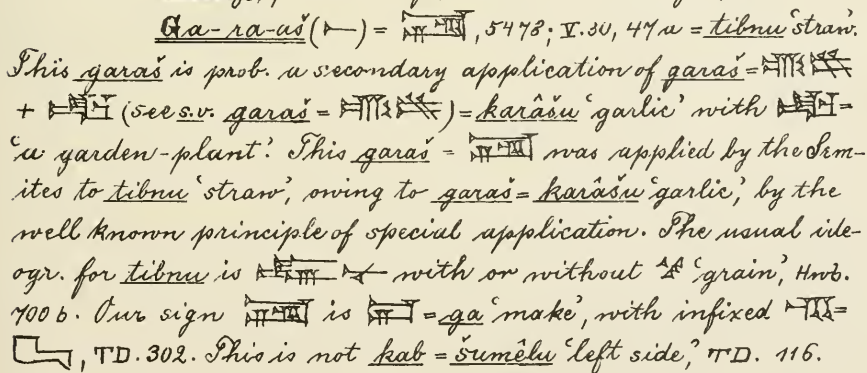 Ga-ra-aš (𒀸) = , 5478; V. 30, 47 a = tibnu 'straw'.
This garaš is prob. a secondary application of garaš =
+ (see s.v. garaš = ) = karâšu 'garlic' with =
'a garden-plant'. This garaš = was applied by the Sem-
ites to tibnu 'straw', owing to garaš = karâšu 'garlic', by the
well known principle of special application. The usual ide-
ogr. for tibnu is with or without 'grain', Hwb.
700 b. Our sign is = ga 'make', with infixed =
, TD. 302. This is not kab = šumêlu 'left side,' TD. 116.